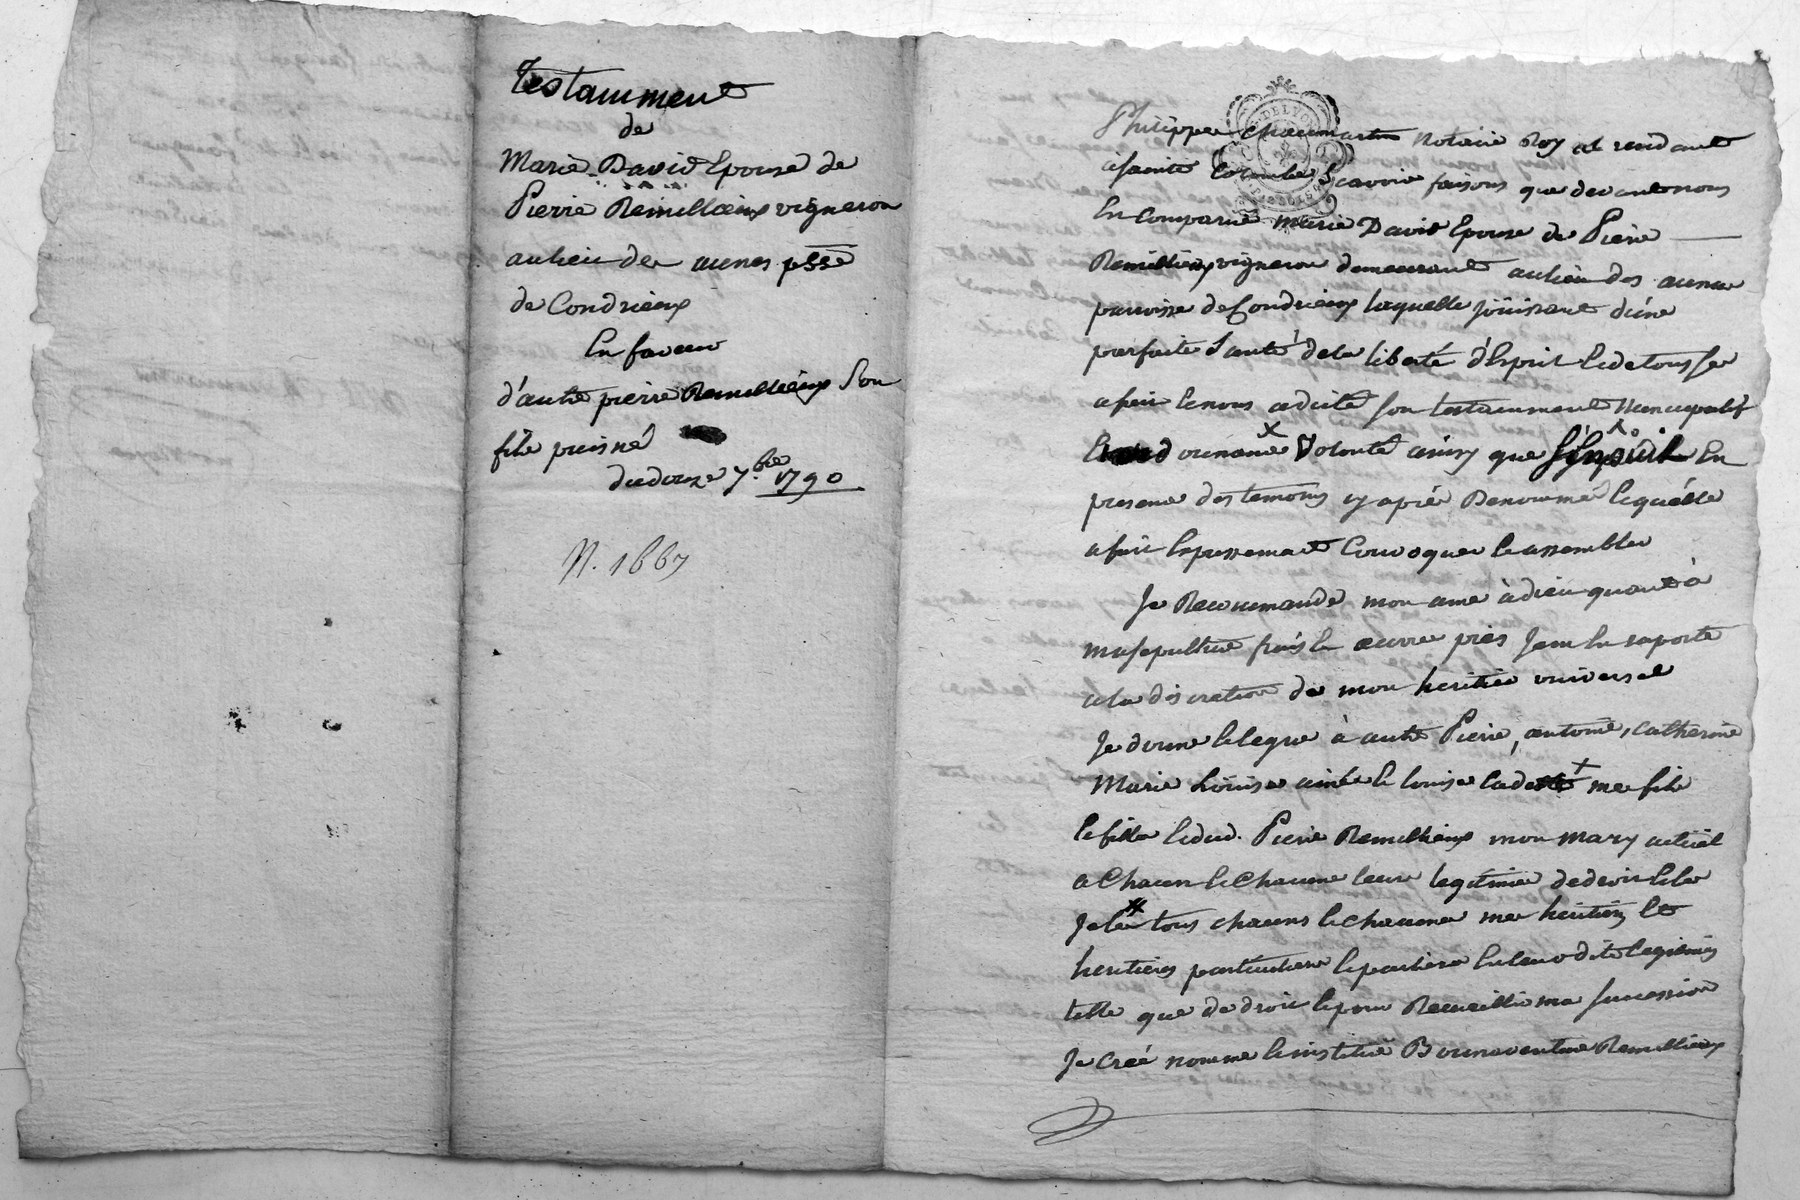 Testamment
de
Marie David Epouse de
Pierre Remillieux vigneron
au lieu des aunes psse
de Condrieux
En faveur
d'autre pierre Remillieux Son
fils puisné
du douze 7.bre 1790
N. 1667
Philippe Chaumartin notaire Royal residant
a sainte Colombe Scavoir faisons que devant nous
En Comparue Marie David Epouse de Pierre
Remillieux vigneron demeurant au lieu des aunes
parroisse de Condrieux laquelle joüissant d'une
parfaite Santé de la liberté d'Esprit Et de tous ses
a fait Et nous a dicté son testamment Nuncupatif
Et ordonnance Volonté ainsy que En
presence des temoins cy aprés Denommé Lequelle
a fait Expressement Convoquer Et assembler
Je Recommande mon ame à dieu quant à
ma sepulture frais Et œuvre pies Jem En raporte
a la discretion de mon heritier universel
Je donne Et legue à autre Pierre, antoine, Catherine
Marie Loüise ainée Et Louise Cadette me fils
Et fille Et dud. Pierre Remillieux mon mary actüel
a Chacun Et Chacune leur legitime de droit Et les
tous chacuns Et chacune mes heritiers Et
heritieres particuliere En leur dite legitimes
telle que de droit Et pour Recueillir ma succession
Je Créé nomme Et institue Bonnaventure Remillieux